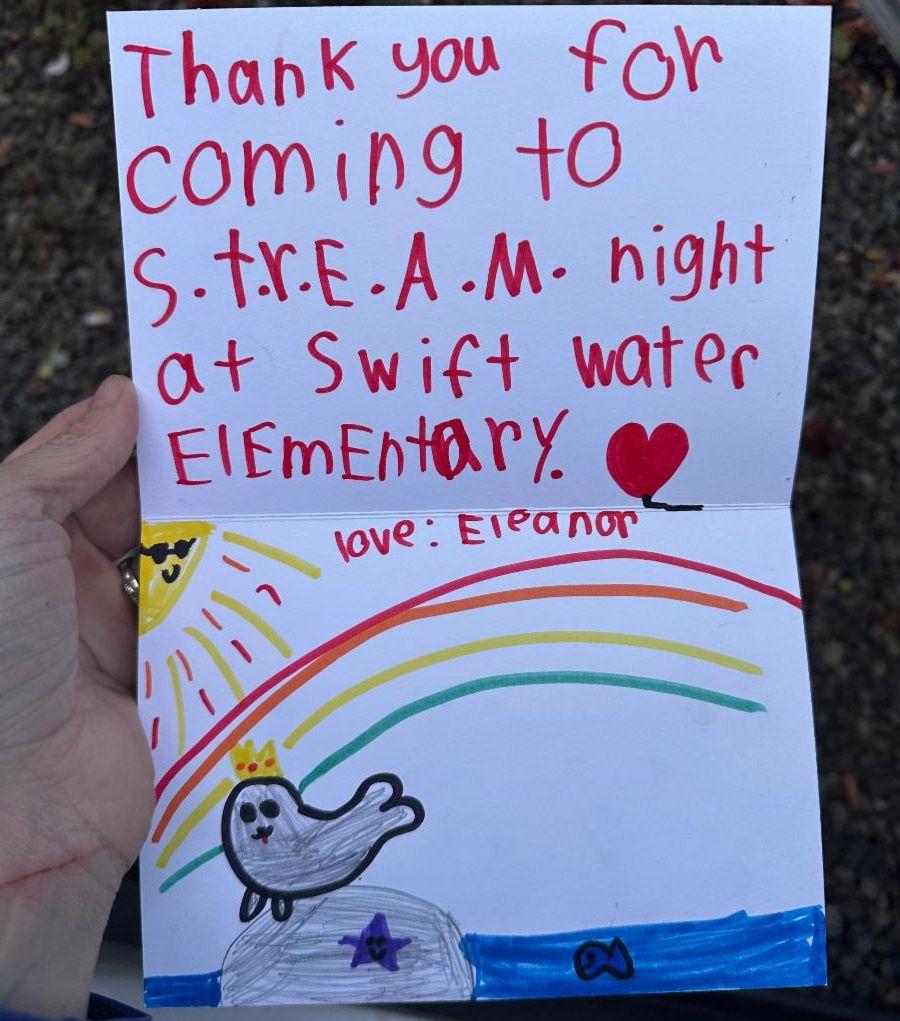 Thank you for
coming to
S.t.r.E.A.M. night
at Swift water
ElEmEntary.
love: Eleanor